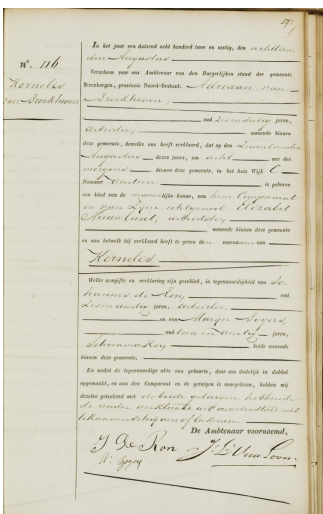 59.
N°. 116
Kornelis
van Broekhoven.
In het jaar een duizend acht honderd twee en zestig, den achttien
den Augustus
Verscheen voor ons Ambtenaar van den Burgerlijken stand der gemeente
Steenbergen, provincie Noord-Braband. Adriaan van
Broekhoven,
oud jaren,
arbeider, wonende binnen
deze gemeente, dewelke ons heeft verklaard, dat op den
Augustus dezes jaars, om acht ure des
morgens binnen deze gemeente, in het huis Wijk C
Nummer is geboren
een kind van de mannelijke kunne, van hem Comparant
en van zijne echtgenoot Elizabet
arbeidster,
wonende binnen deze gemeente
en aan hetwelk hij verklaard heeft te geven den voornaam van
Kornelis
Welke aangifte en verklaring zijn geschied, in tegenwoordigheid van Jo
hannes de Ron, oud
jaren, arbeider,
en van Marijn Gogers,
oud twee en veertig jaren,
beide wonende
binnen deze gemeente.
En nadat de tegenwoordige akte van geboorte, daar ons dadelijk in dubbel
opgemaakt, en aan den Comparant en de getuigen is voorgelezen, hebben wij
dezelve geteekend met de beide getuigen hebbende
de vader verklaard uit onwetendheid niet
te kunnen schrijven of teekenen
De Ambtenaar voornoemd,
J De Ron